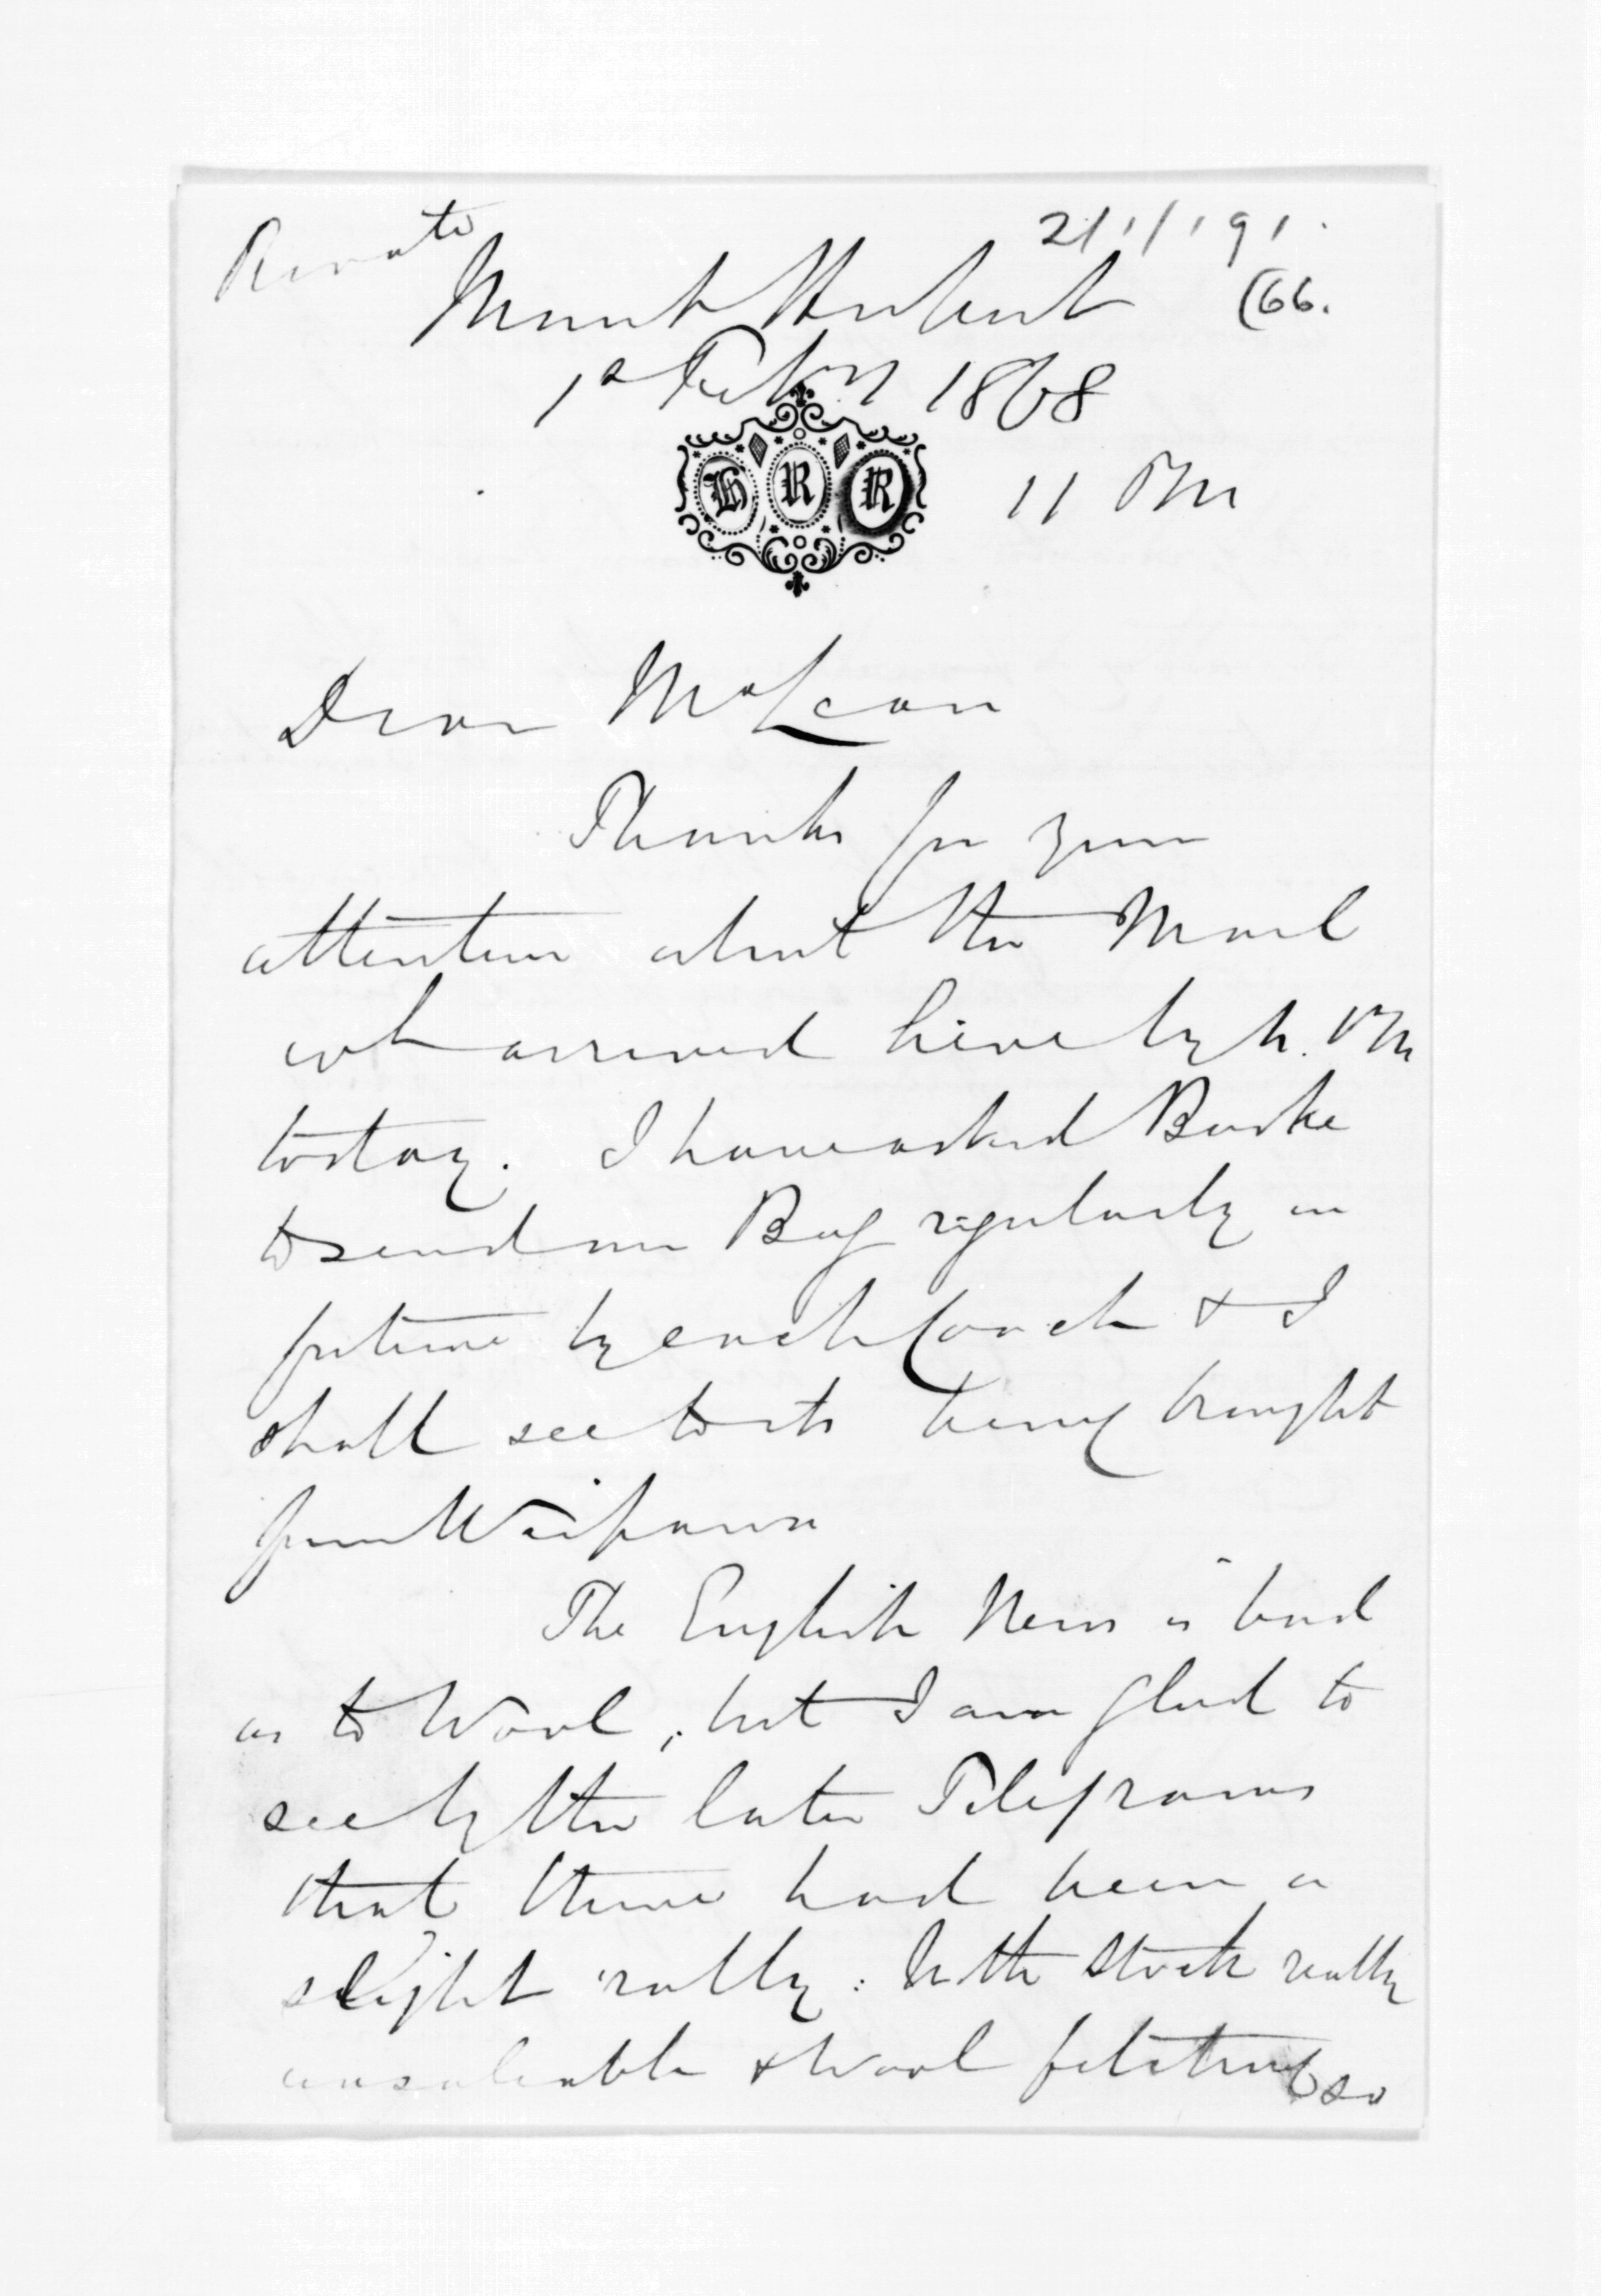 Private
21/1/191.
Mount Herbert
(66.
1st Feby 1868
H R R
11 PM
Dear McLean
Thanks for your
attention about the Mail
wh arrived here by h. PM
today. I have asked Burke
to send my Bag regularly in
future by each Coach & I
shall see to its being brought
from Waipawa
The English News is bad
as to Wool, but I am glad to
see by the later Telegrams
that there had been a
slight rally: With Stock really
unsaleable & Wool fetching so